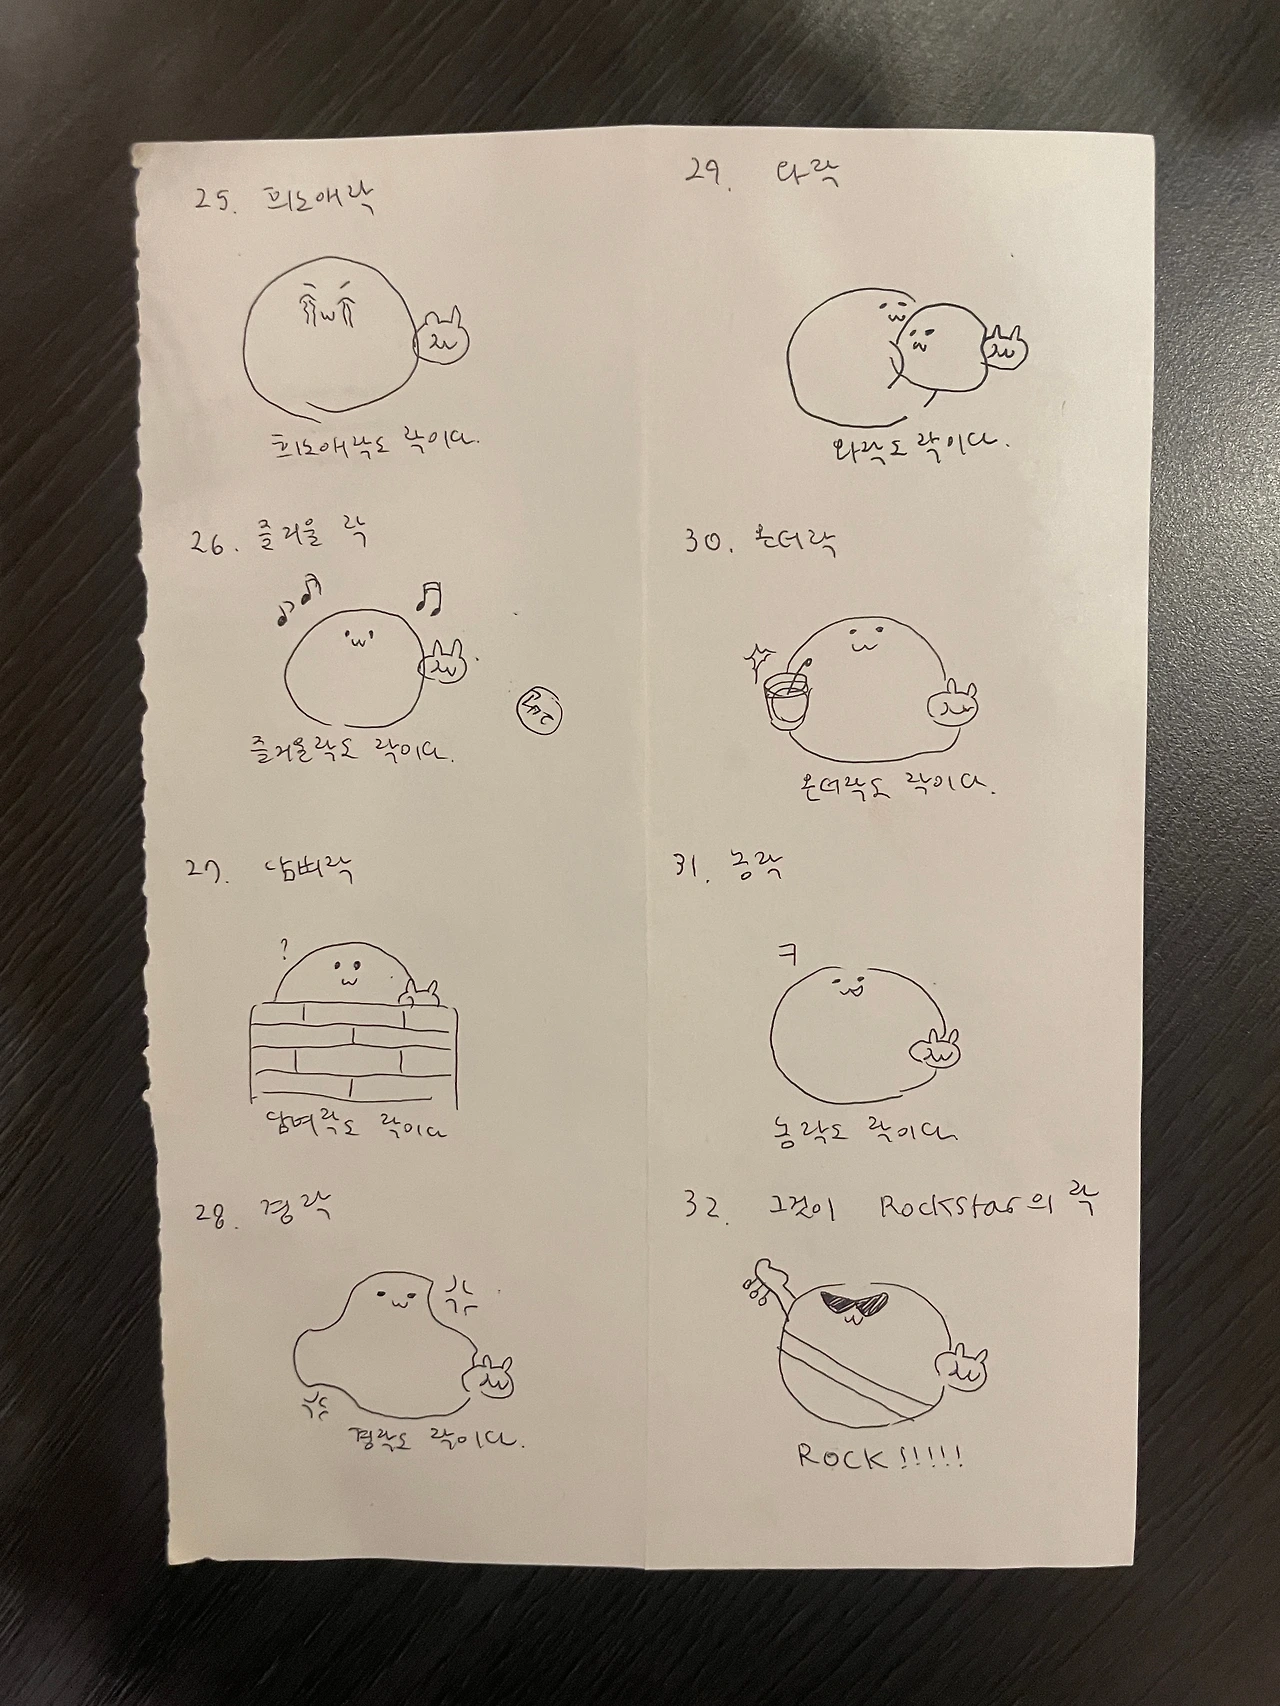 25. 희노애락
희노애락도 락이다.
26. 즐거울 락
즐거울락도 락이다.
27. 담벼락
?
담벼락도 락이다
28. 경락
경락도 락이다.
29. 와락
와락도 락이다.
30. 온더락
온더락도 락이다.
31. 농락
ㅋ
농락도 락이다.
32. 그것이 Rockstar의 락
ROCK!!!!!